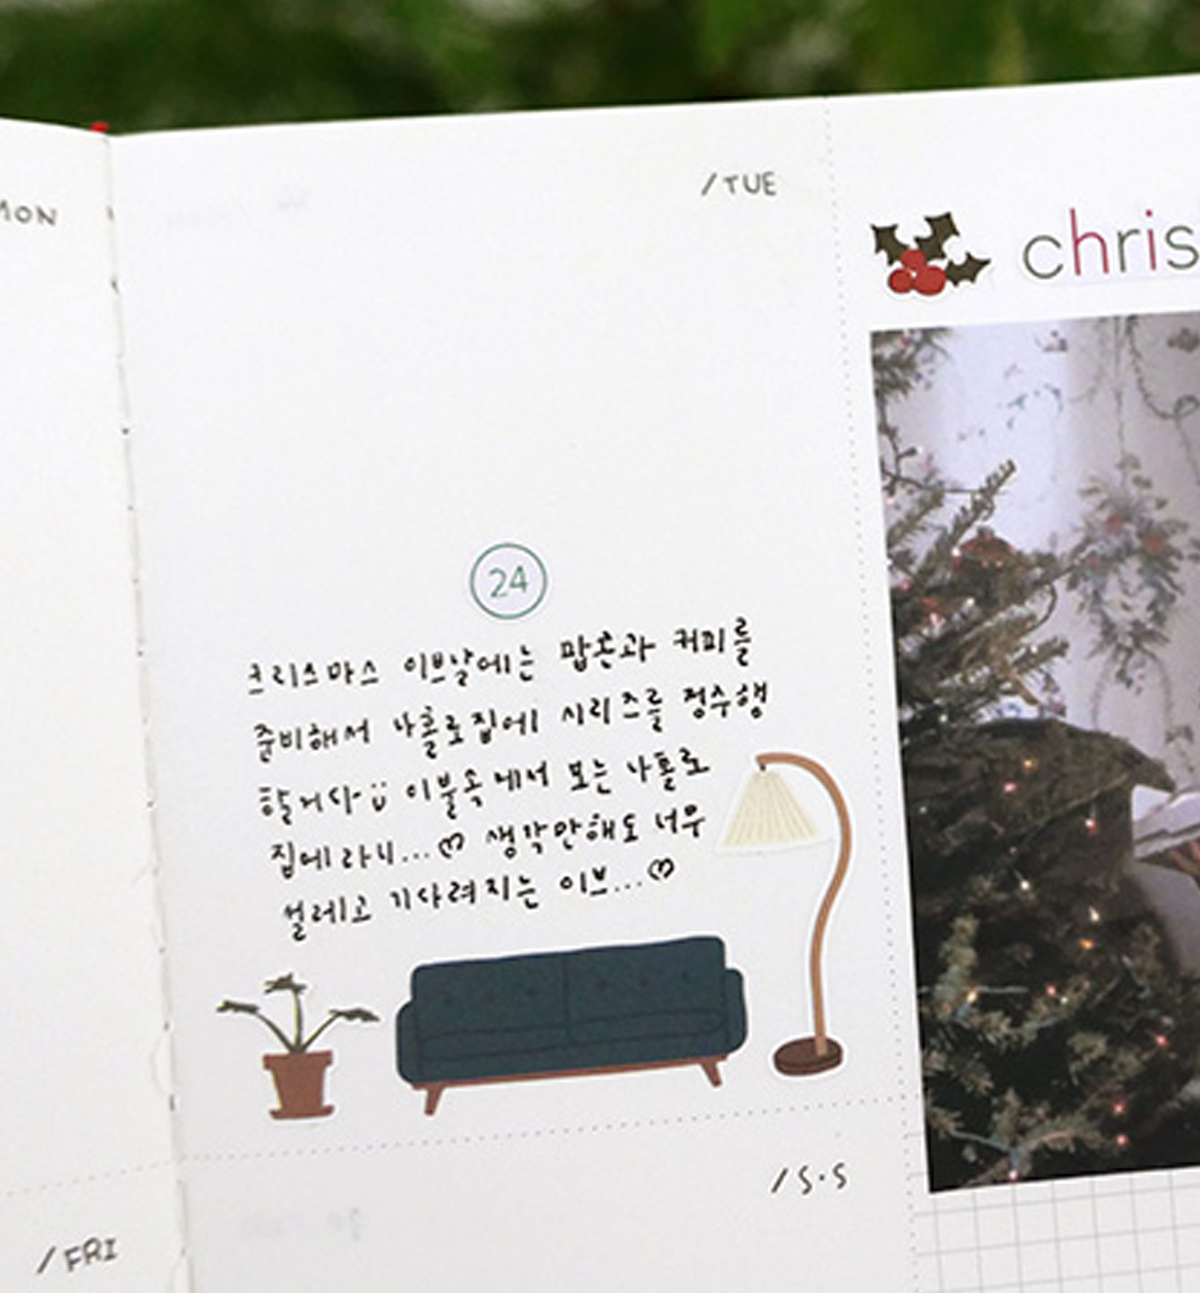 MON
/TUE
chris
24
크리스마스 이브날에는 팝콘과 커피를
준비해서 나홀로집에 시리즈를 정주행
할거다 이불속에서 보는 나홀로
집에라니...♡ 생각만해도 너무
설레고 기다려지는 이브...♡
/S.S
/FRI